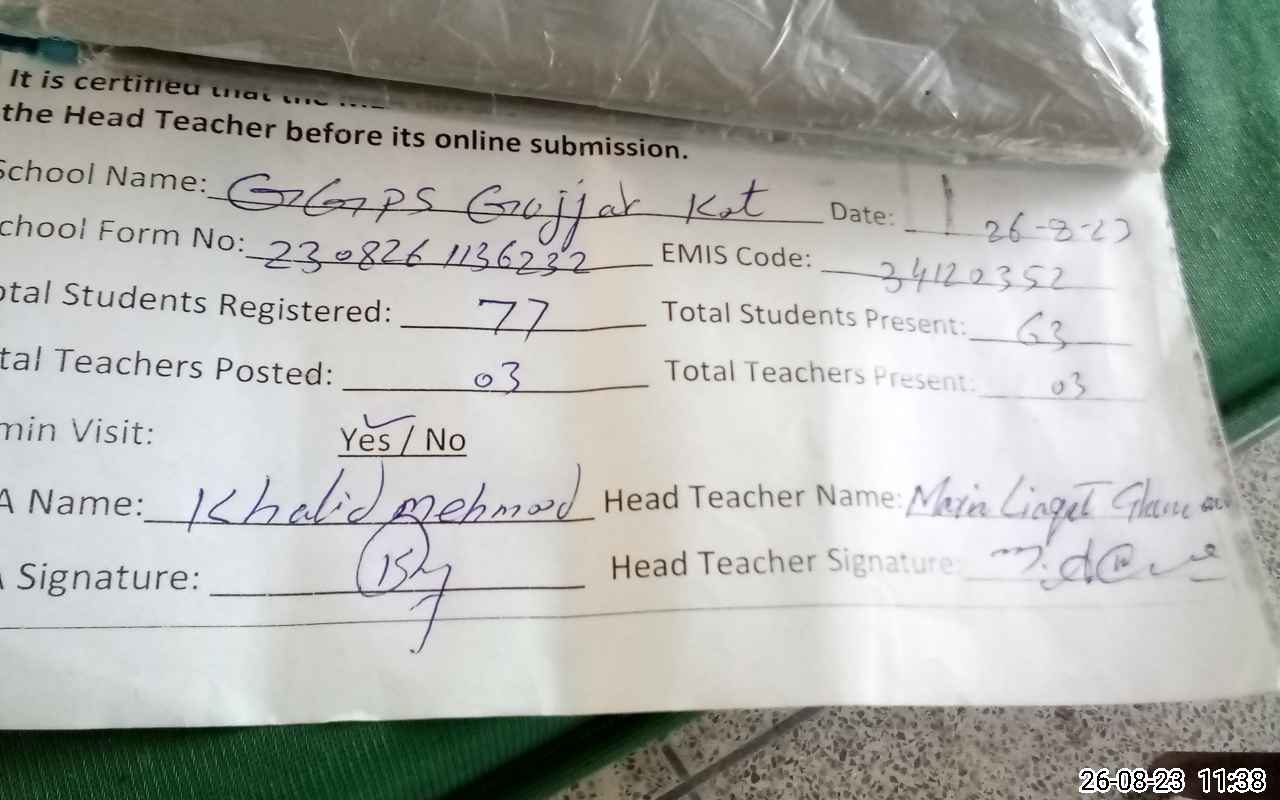 It is certified that the
the Head Teacher before its online submission.
School Name: GGPS Gujjar Kot Date: 26-8-23
chool Form No: 230826 1136232 EMIS Code: 34120352
otal Students Registered: 77 Total Students Present: 63
tal Teachers Posted: 03 Total Teachers Present: 03
min Visit: Yes / No
A Name: Khalid mehmood Head Teacher Name: Maria Liaqat
Signature: Head Teacher Signature:
26-08-23 11:38